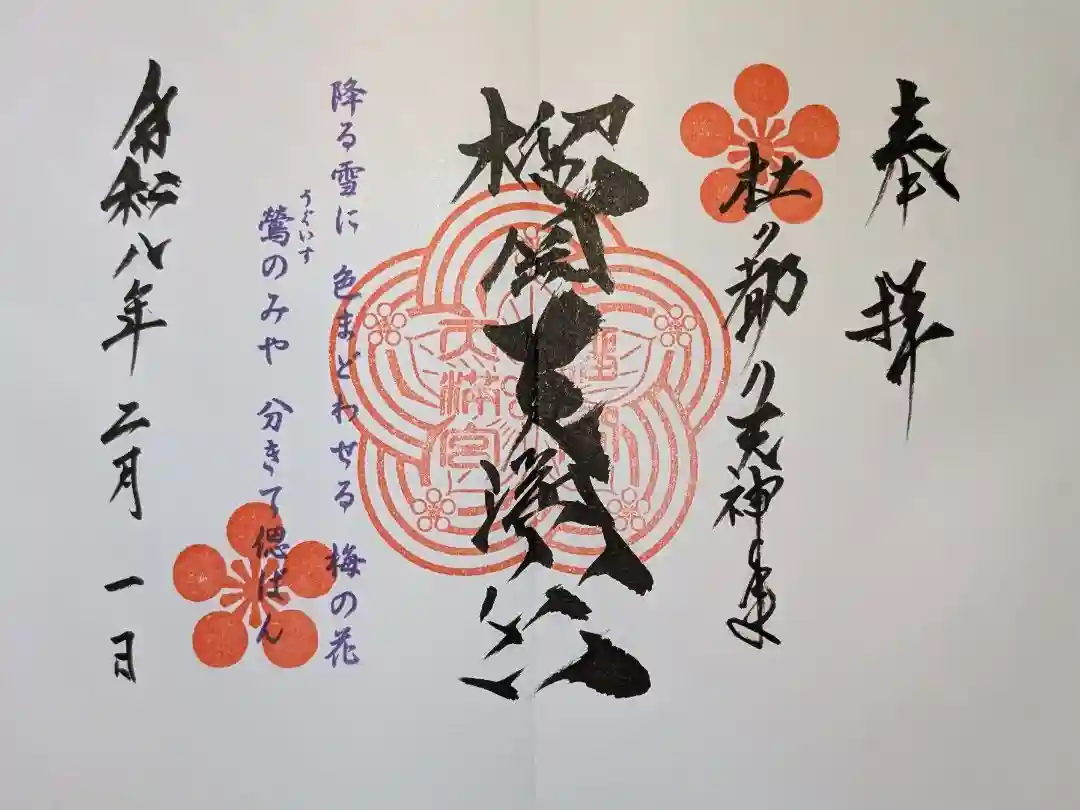 奉拝
杜の都の天神
榴岡天満宮
天満宮
降る雪に 色まどわせる 梅の花
うぐいす
鶯のみや 分きて偲ばん
令和八年 二月 一日